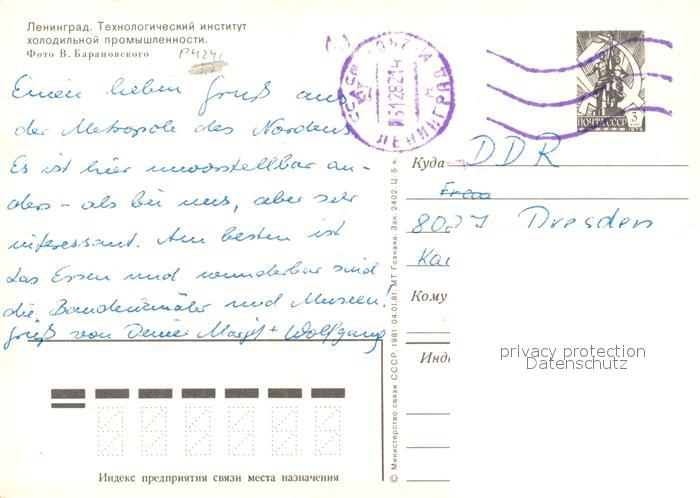 Ленинград. Технологический институт
холодильной промышленности.
Фото В. Барановского
Einen lieben Gruß aus
der Metropole des Nordens
Es ist hier unvorstellbar an-
ders – als bei uns, aber sehr
interessant. Am besten ist
das Essen und wunderbar sind
die Baudenkmäler und Museen!
Gruß von Deiner Margit + Wolfgang
Индекс предприятия связи места назначения
© Министерство связи СССР. 1981 04.01.81. МТ Гознака. Зак. 2402. Ц. 5 к.
ЛЕНИНГРАД
ПОЧТА СССР
3
Куда DDR
Frau
Dresden
Кому
privacy protection
Datenschutz